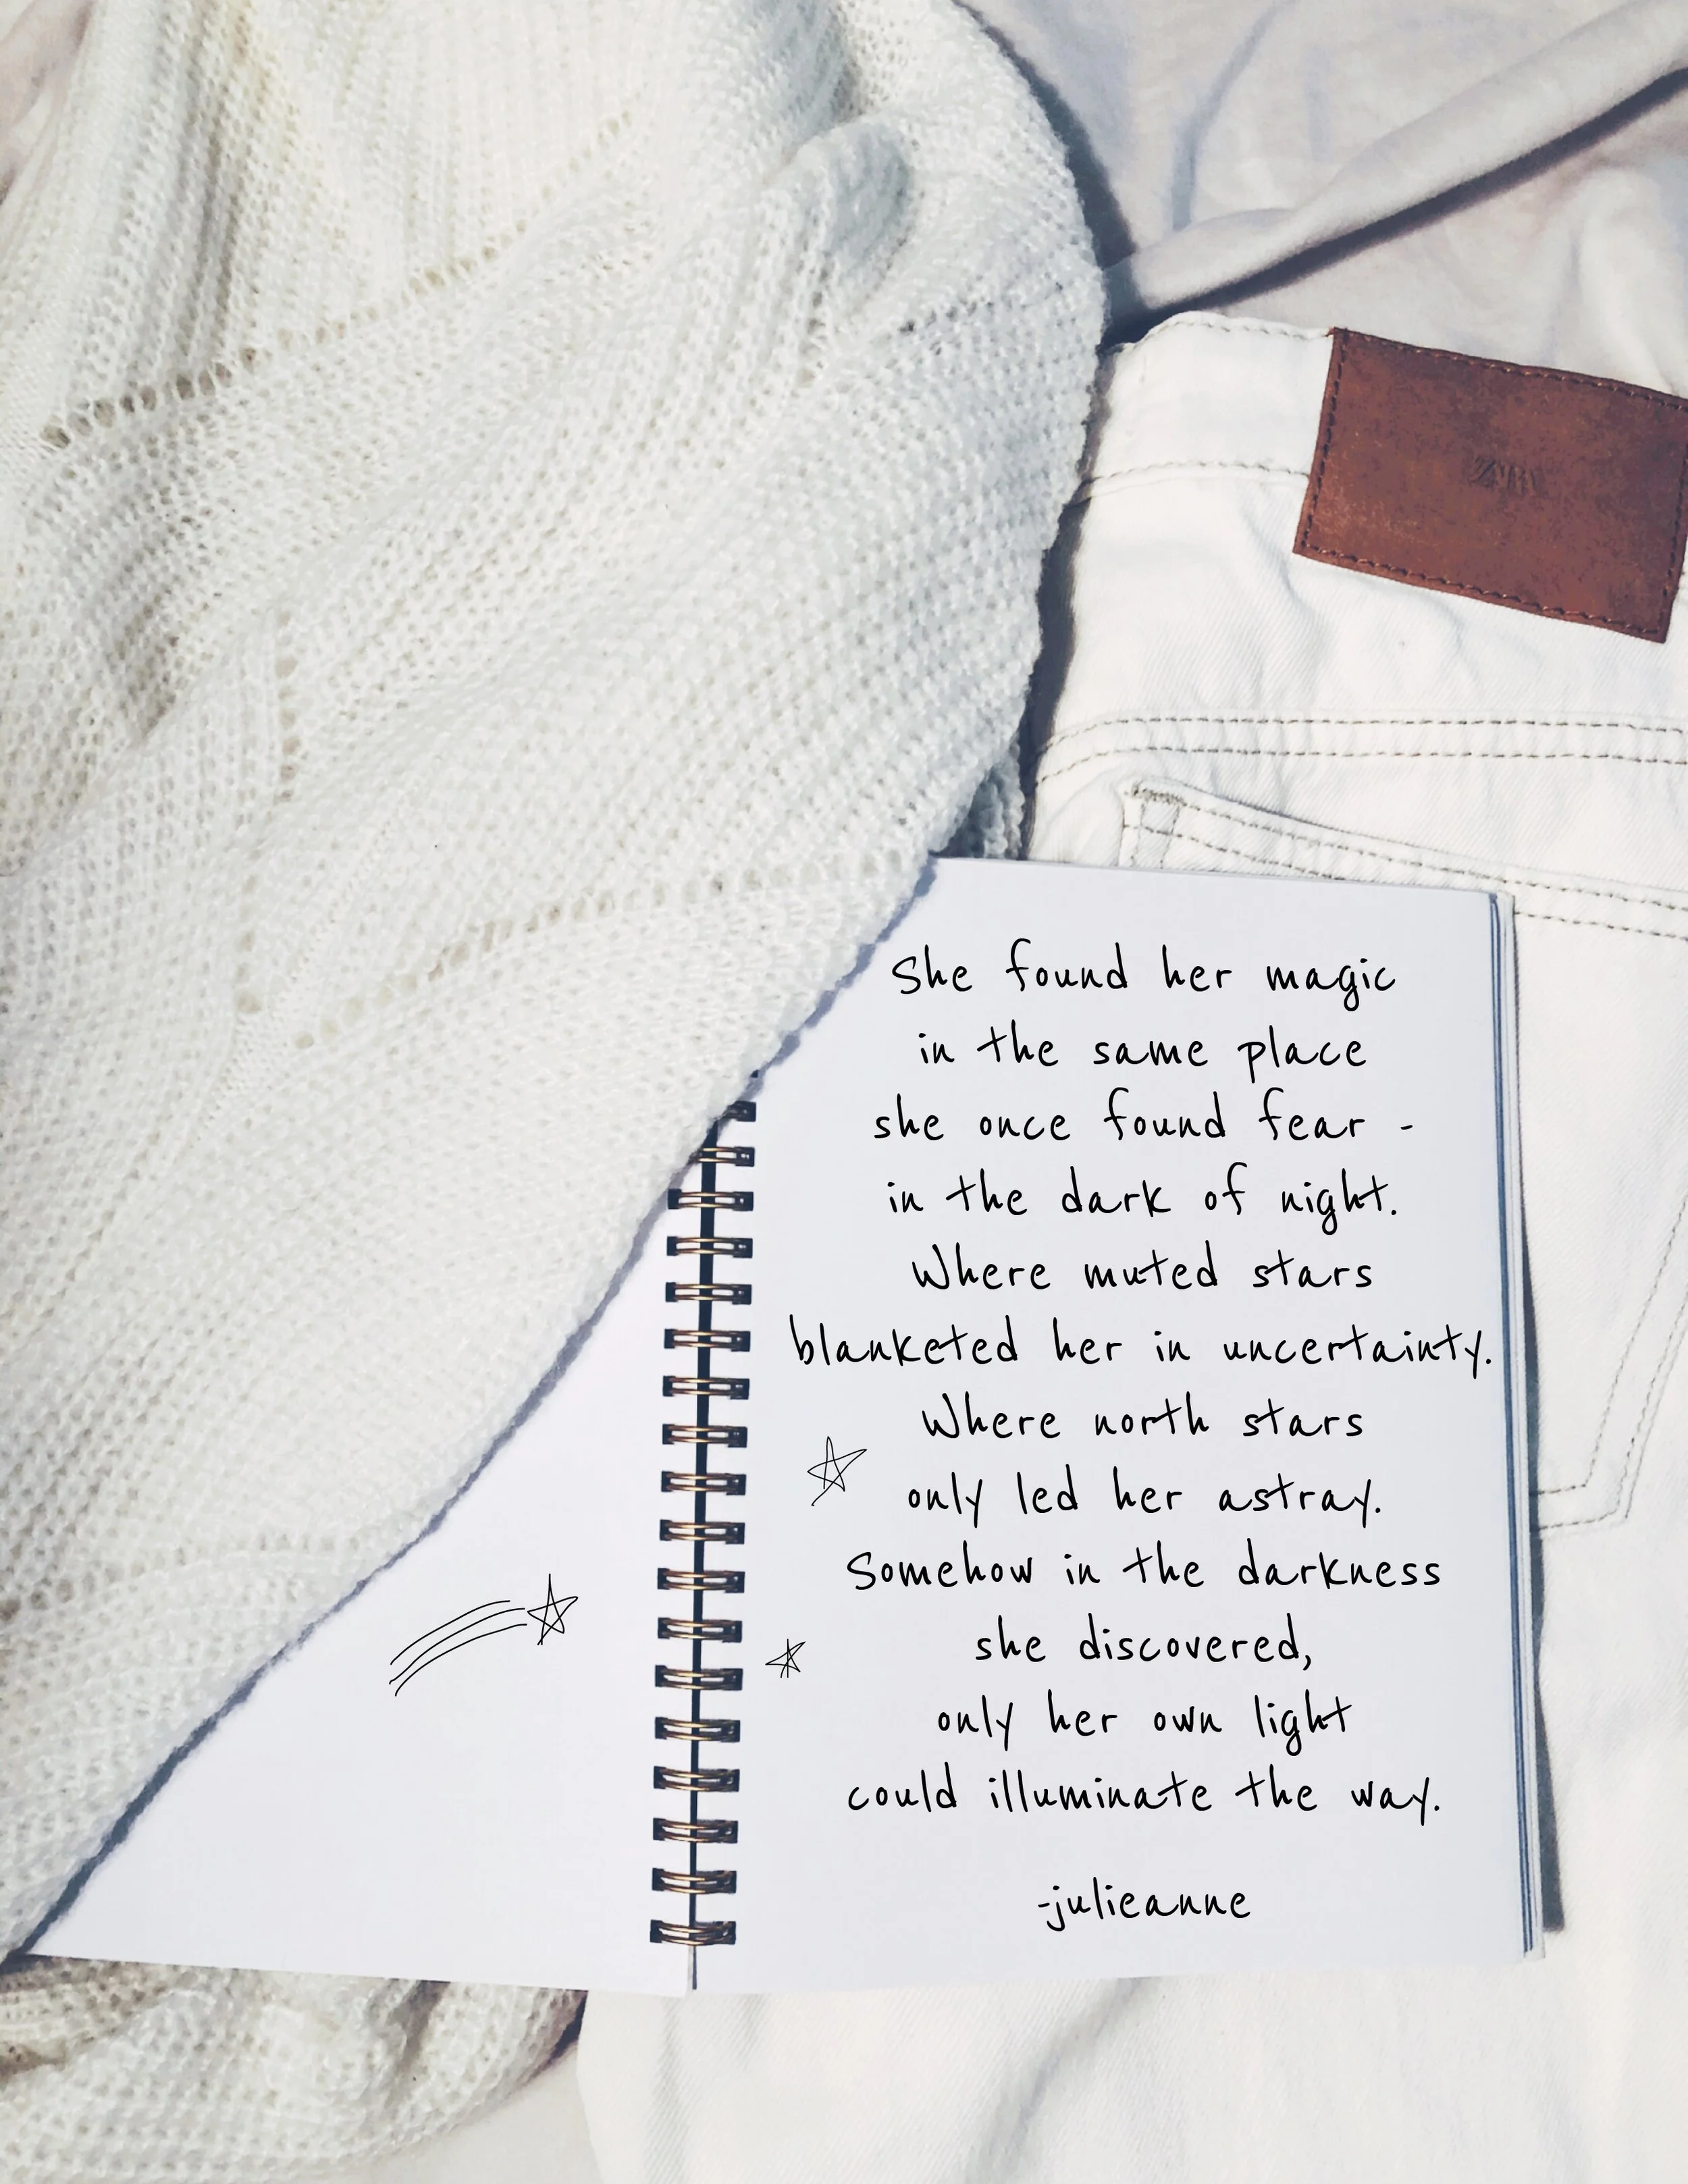 She found her magic
in the same place
she once found fear -
in the dark of night.
Where muted stars
blanketed her in uncertainty.
Where north stars
only led her astray.
Somehow in the darkness
she discovered,
only her own light
could illuminate the way.
-julieanne